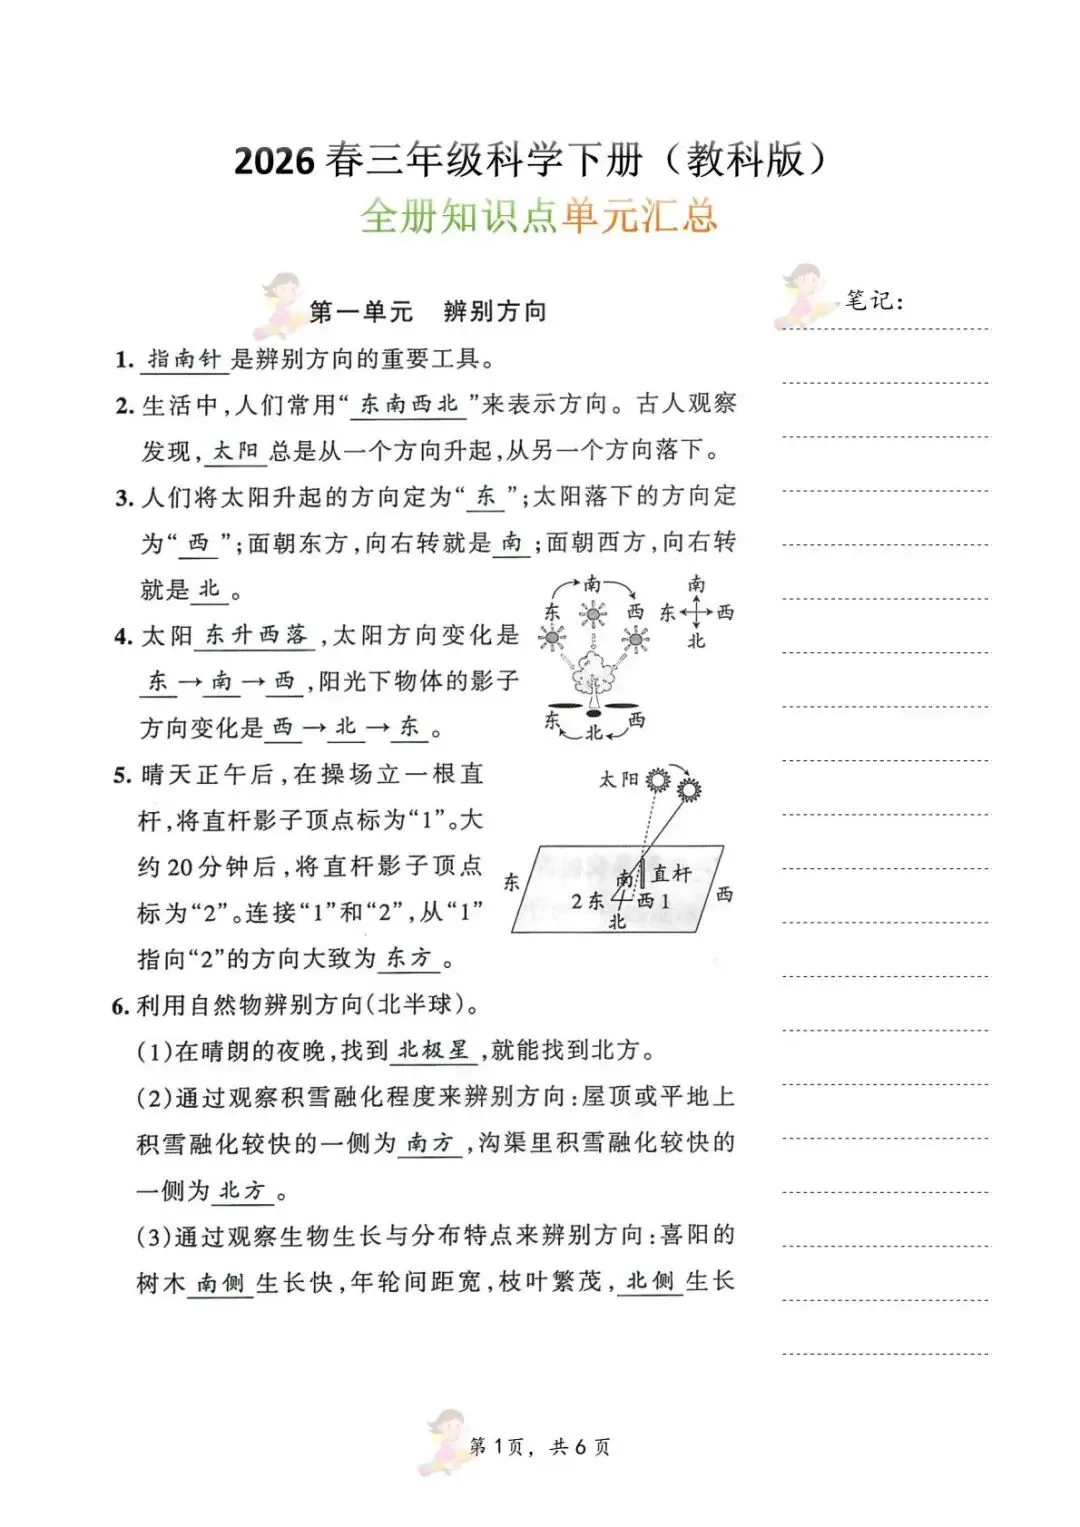 2026春三年级科学下册（教科版）
全册知识点单元汇总
第一单元 辨别方向
笔记：
1. 指南针是辨别方向的重要工具。
2. 生活中,人们常用“东南西北”来表示方向。古人观察
发现,太阳总是从一个方向升起,从另一个方向落下。
3. 人们将太阳升起的方向定为“东”;太阳落下的方向定
为“西”;面朝东方,向右转就是南;面朝西方,向右转
就是北。
南
东 西
南
东 西
北
东 北 西
4. 太阳东升西落,太阳方向变化是
东→南→西,阳光下物体的影子
方向变化是西→北→东。
5. 晴天正午后,在操场立一根直
杆,将直杆影子顶点标为“1”。大
约20分钟后,将直杆影子顶点
标为“2”。连接“1”和“2”,从“1”
指向“2”的方向大致为东方。
太阳
东 南 直杆 西
2 东 西 1
北
6. 利用自然物辨别方向(北半球)。
(1)在晴朗的夜晚,找到北极星,就能找到北方。
(2)通过观察积雪融化程度来辨别方向:屋顶或平地上
积雪融化较快的一侧为南方,沟渠里积雪融化较快的
一侧为北方。
(3)通过观察生物生长与分布特点来辨别方向:喜阳的
树木南侧生长快,年轮间距宽,枝叶繁茂,北侧生长
第1页，共6页